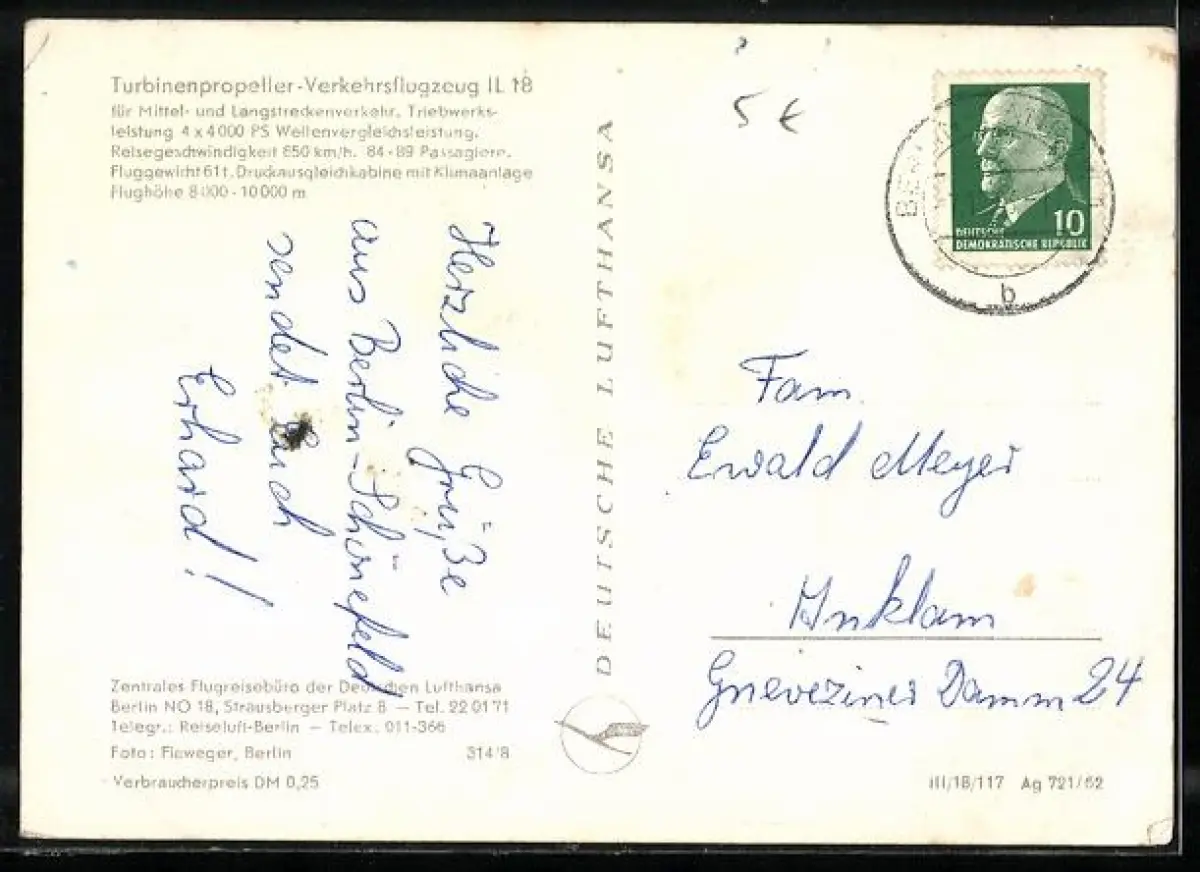 Turbinenpropeller-Verkehrsflugzeug IL 18
für Mittel- und Langstreckenverkehr. Triebwerks-
leistung 4 x 4000 PS Wellenvergleichsleistung.
Reisegeschwindigkeit 650 km/h. 84-89 Passagiere.
Fluggewicht 61 t. Druckausgleichkabine mit Klimaanlage
Flughöhe 8000-10000 m
Herzliche Grüße
aus Berlin-Schönefeld
sendet Euch
Erhard!
Zentrales Flugreisebüro der Deutschen Lufthansa
Berlin NO 18, Strausberger Platz 8 — Tel. 22 01 71
Telegr.: Reiseluft-Berlin — Telex: 011-366
Foto: Fieweger, Berlin 314/8
Verbraucherpreis DM 0,25
DEUTSCHE LUFTHANSA
5 €
10
DEUTSCHE
DEMOKRATISCHE REPUBLIK
b
Fam.
Ewald Meyer
Anklam
Gneveziner Damm 24
III/18/117 Ag 721/62